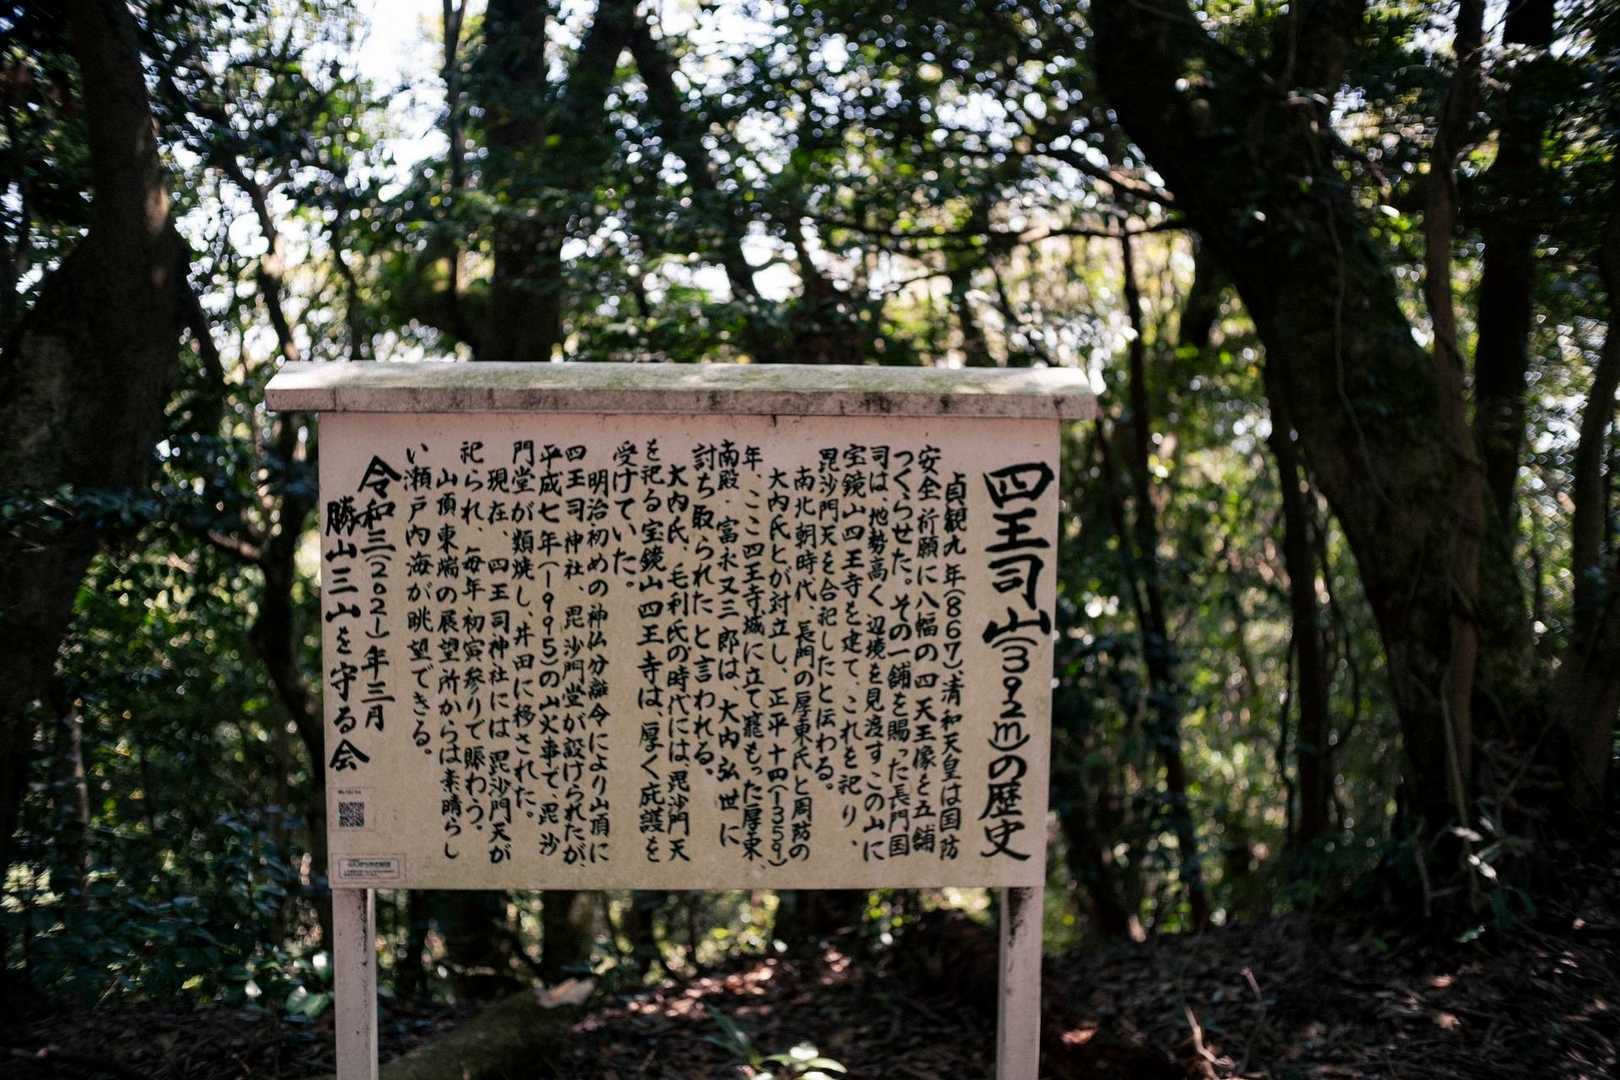 四王司山(392m)の歴史
貞観九年(867)清和天皇は国防
安全祈願に八幅の四天王像を五舗
つくらせた。その一舗を賜った長門国
司は、地勢高く辺境を見渡すこの山に
宝鏡山四王寺を建て、これを祀り、
毘沙門天を合祀したと伝わる。
南北朝時代、長門の厚東氏と周防の
大内氏とが対立し、正平十四(1359)
年、ここ四王寺城に立て籠もった厚東、
南殿・富永又三郎は、大内弘世に
討ち取られたと言われる。
大内氏、毛利氏の時代には毘沙門天
を祀る宝鏡山四王寺は、厚く庇護を
受けていた。
明治初めの神仏分離令により山頂に
四王司神社、毘沙門堂が設けられたが、
平成七年(1995)の山火事で、毘沙
門堂が類焼し、井田に移された。
現在、四王司神社には毘沙門天が
祀られ、毎年初寅参りで賑わう。
山頂東端の展望所からは素晴らし
い瀬戸内海が眺望できる。
令和三(2021)年三月
勝山三山を守る会